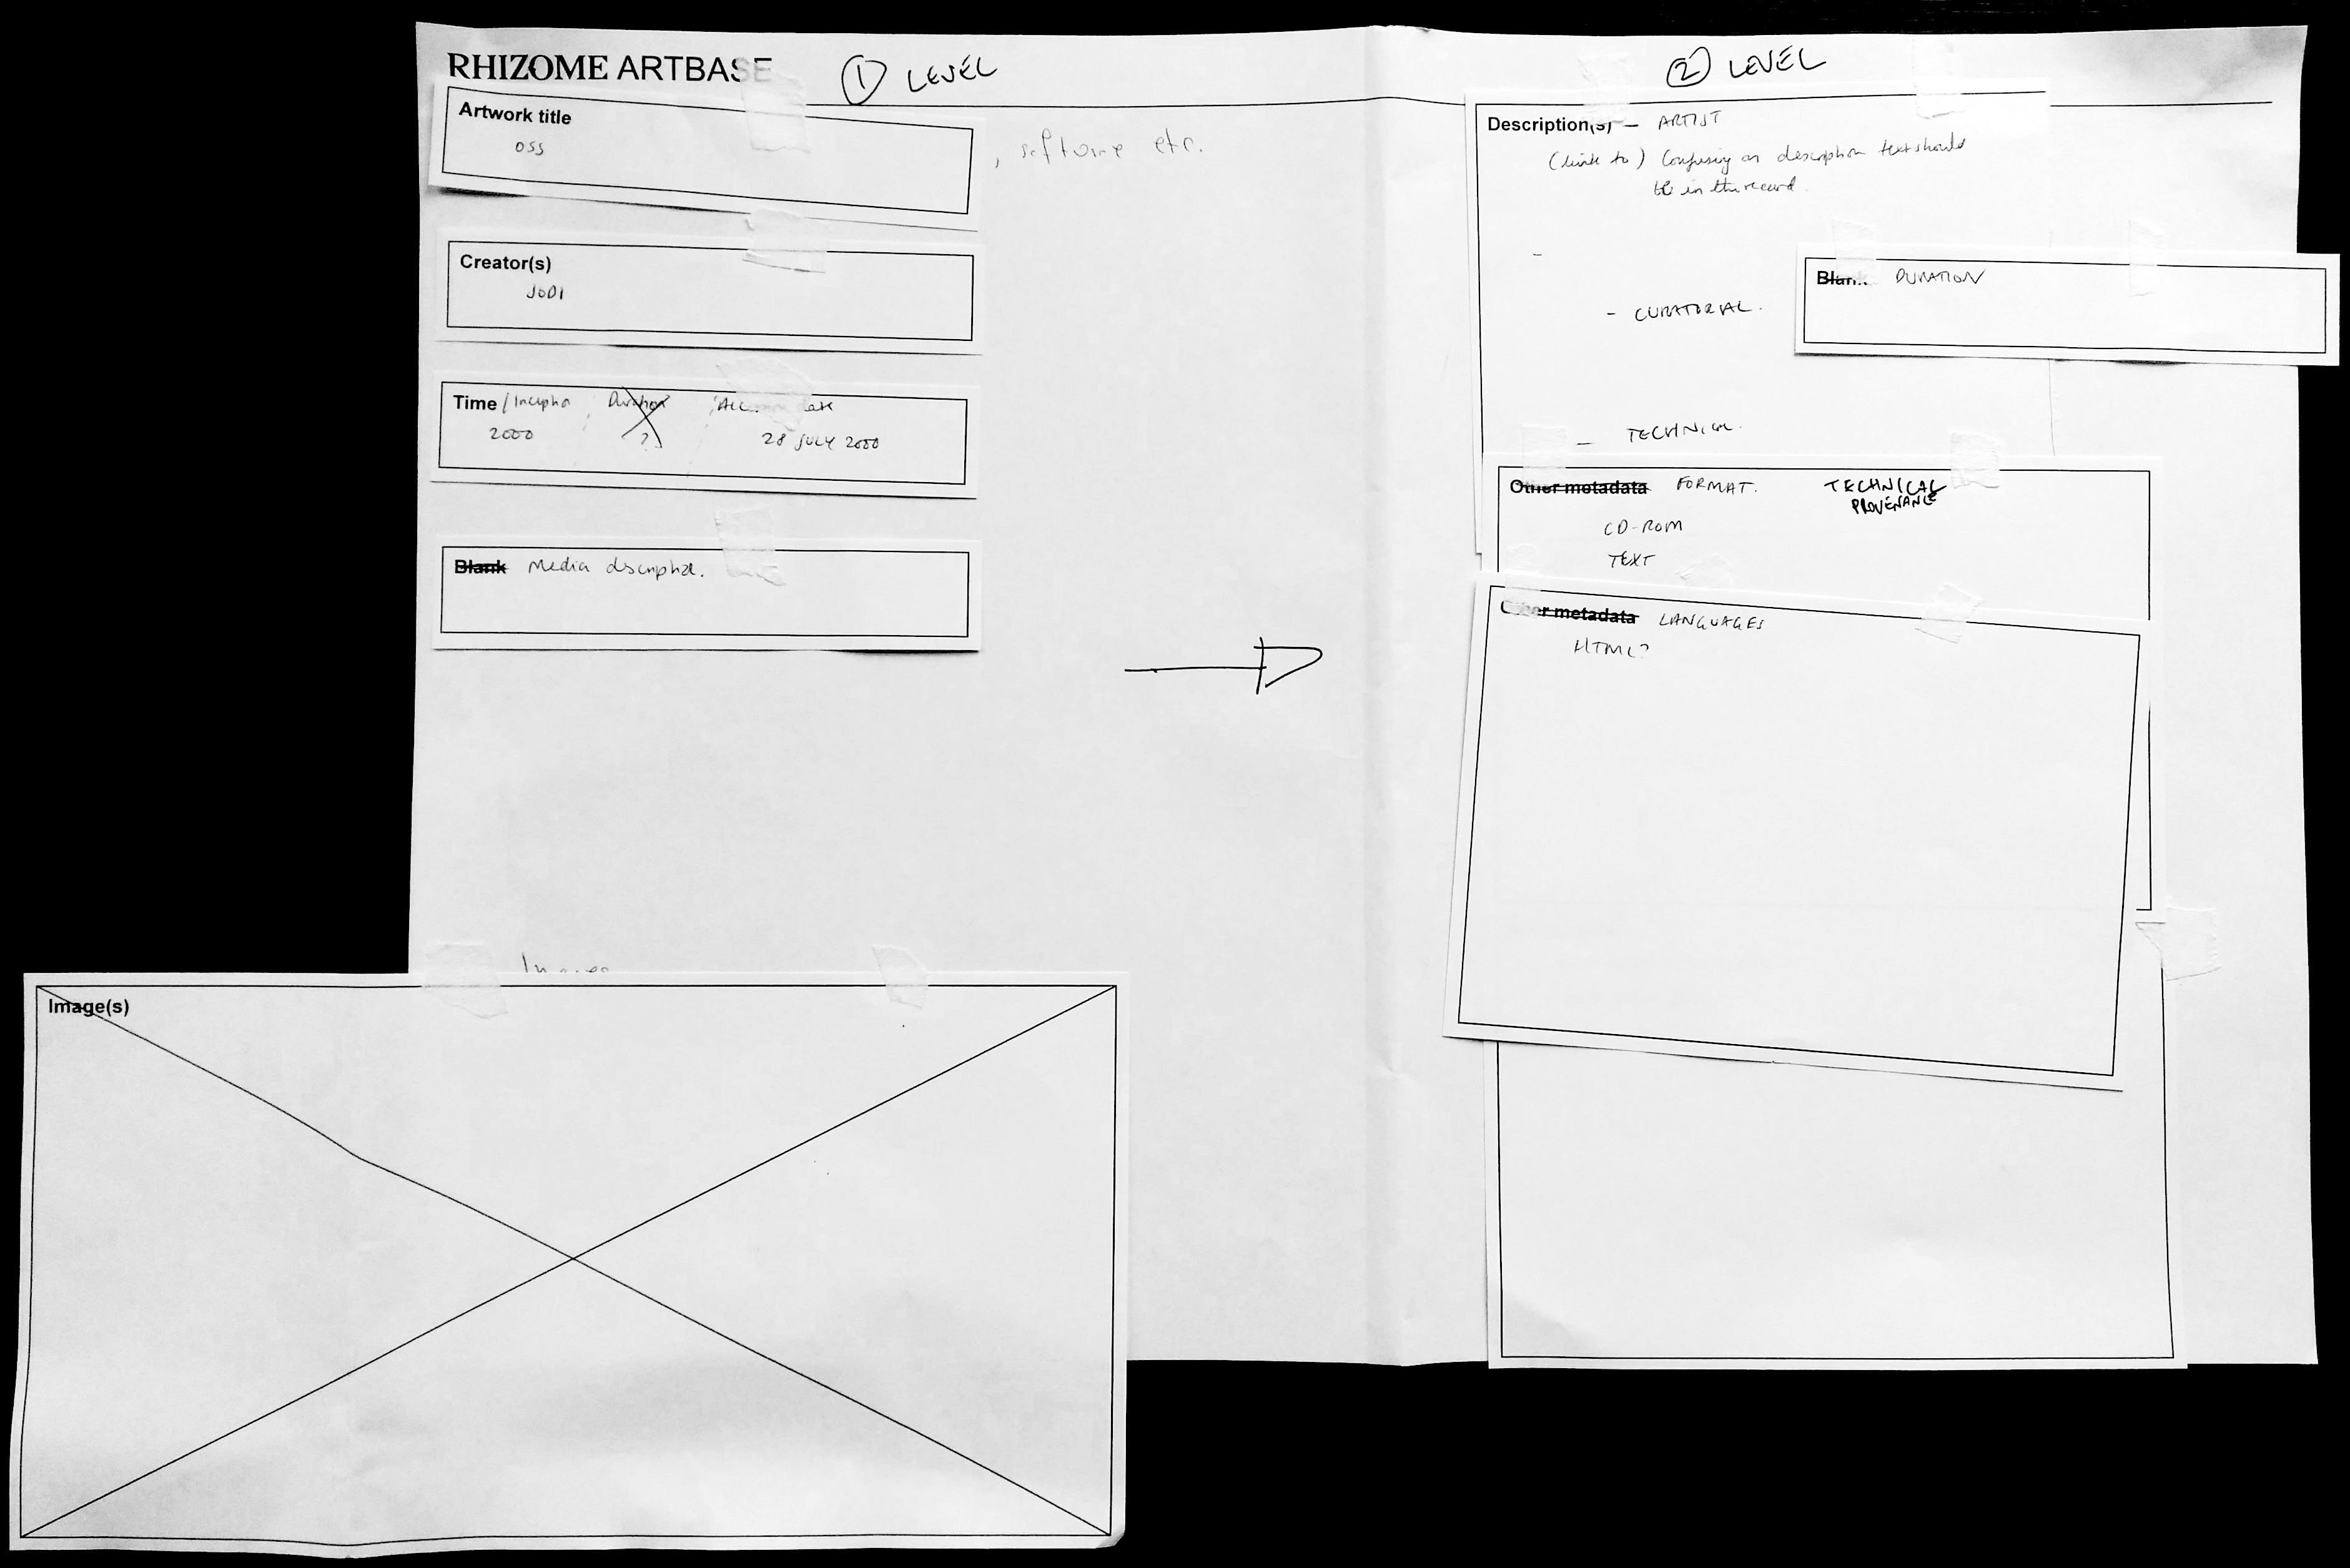 RHIZOME ARTBASE
① LEVEL
Artwork title
OSS
, software etc.
Creator(s)
JODI
Time / Incept Duration Acc. date
2000 ? 28 JULY 2000
Blank Media
Image(s)
② LEVEL
Description(s) — ARTIST
(link to) Confusing as description text should
be in the record.
-
Blank DURATION
- CURATORIAL.
- TECHNICAL.
Other metadata FORMAT. TECHNICAL
PROVENANCE
CD-ROM
TEXT
Other metadata LANGUAGES
HTML?